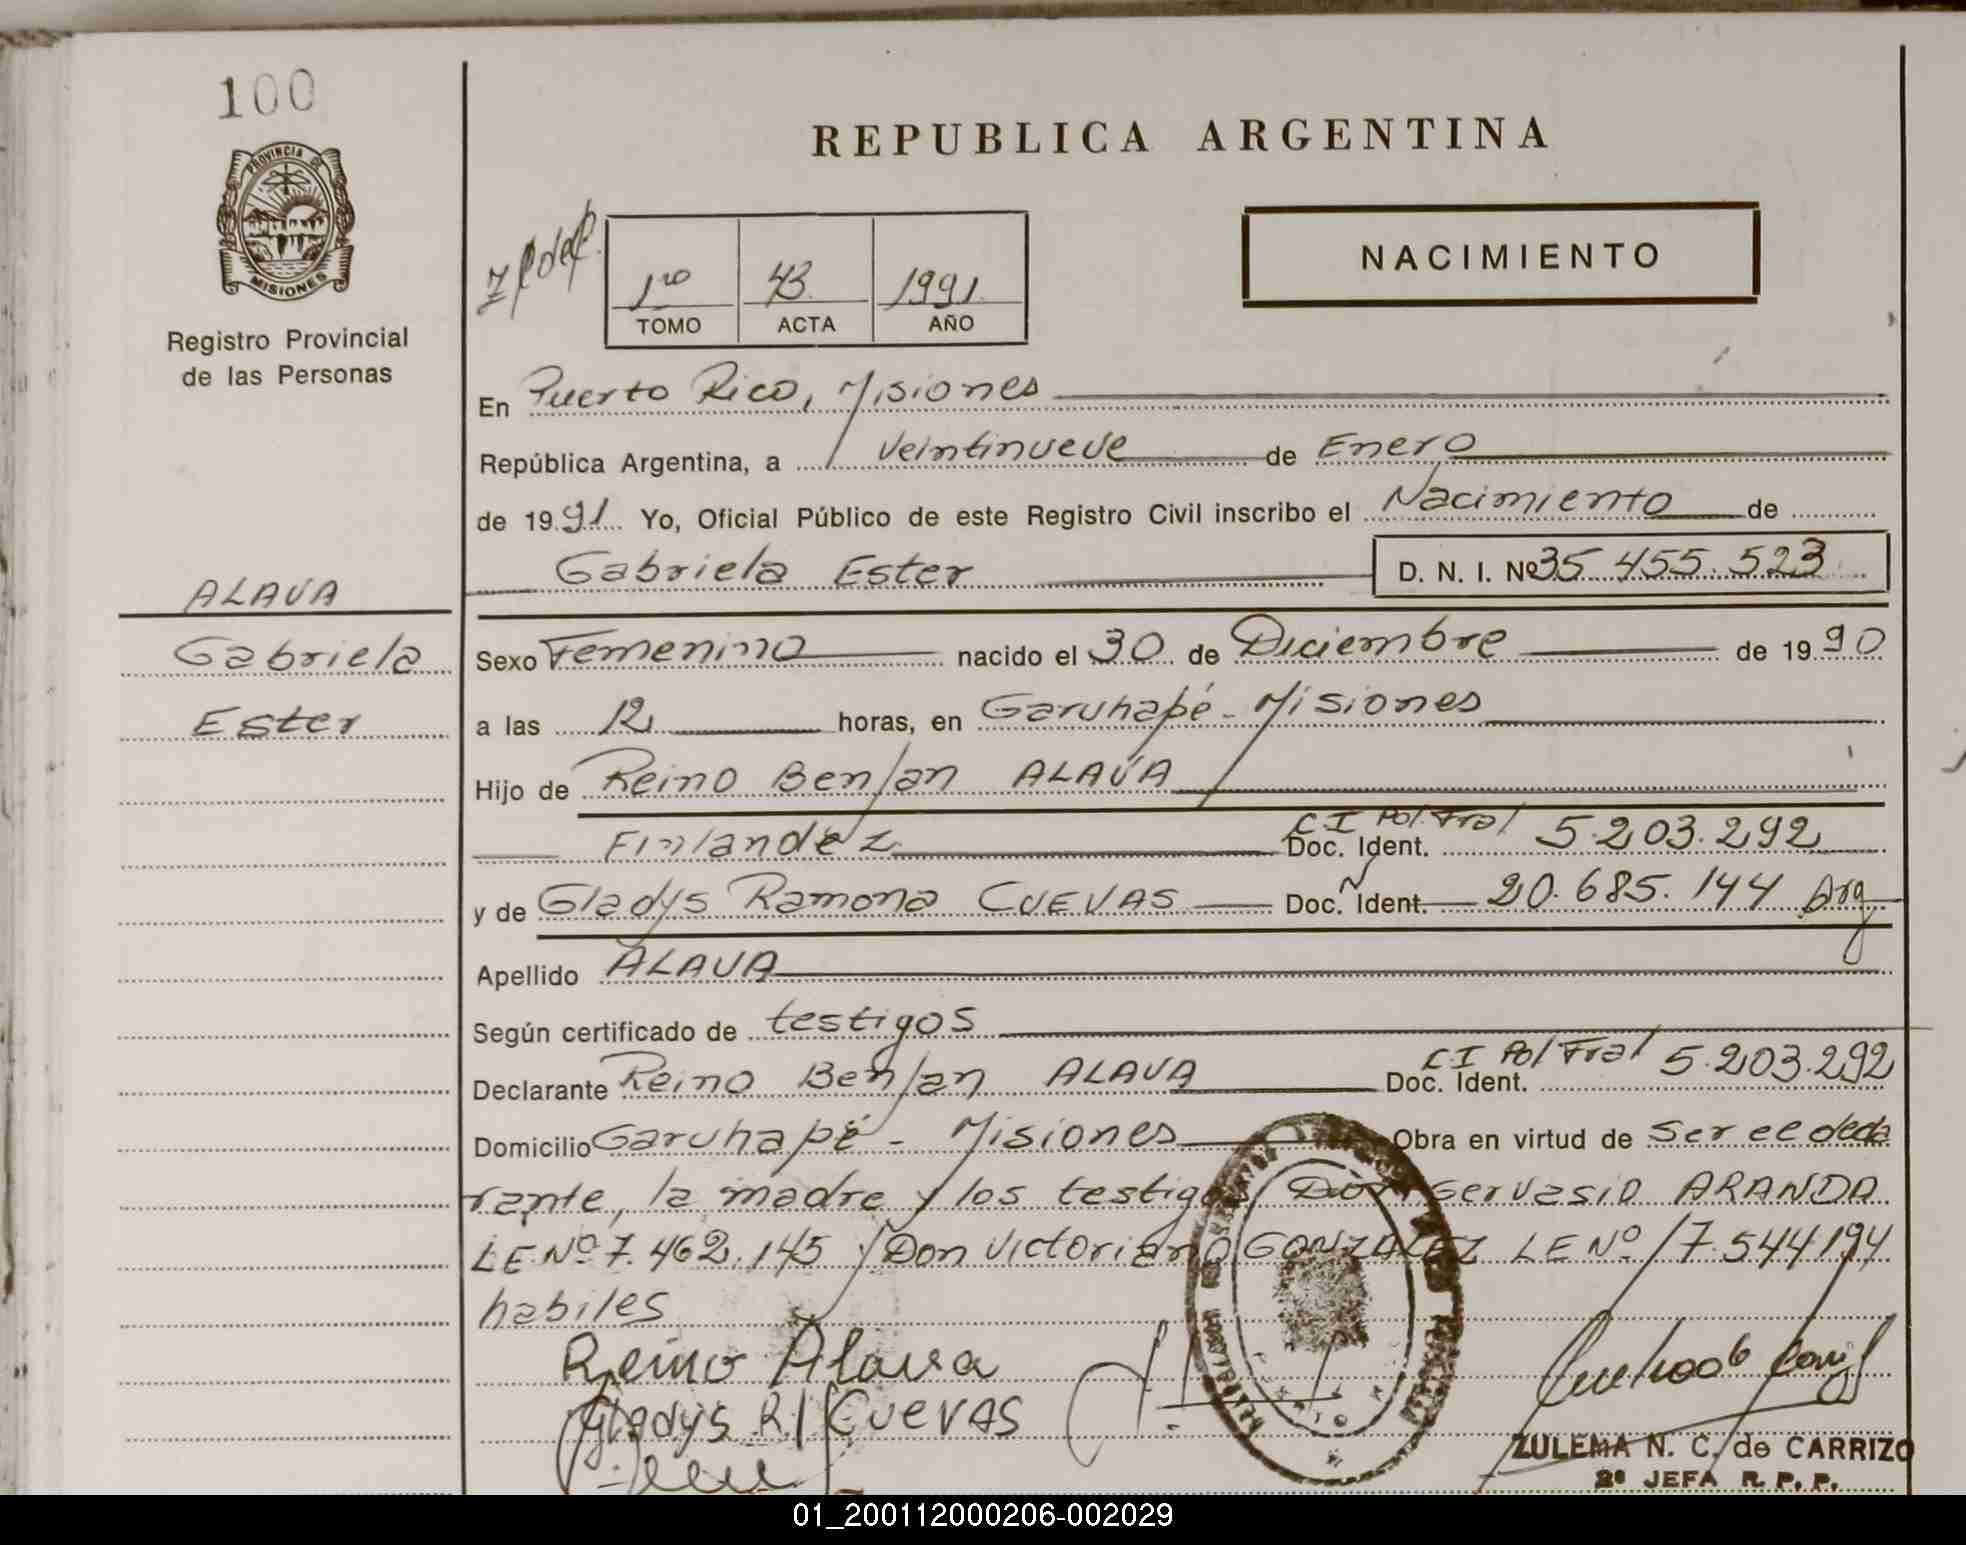 100
PROVINCIA DE
MISIONES
Registro Provincial
de las Personas
ALAVA
Gabriela
Ester
REPUBLICA ARGENTINA
NACIMIENTO
1ro 43 1991
TOMO ACTA AÑO
En Puerto Rico, Misiones
República Argentina, a veintinueve de Enero
de 1991 Yo, Oficial Público de este Registro Civil inscribo el Nacimiento de
Gabriela Ester D. N. I. Nº 35.455.523
Sexo Femenino nacido el 30 de Diciembre de 1990
a las 12 horas, en Garuhapé - Misiones
Hijo de Reino Benjan ALAVA
Finlandéz Doc. Ident. CI Pol. Fral 5.203.292
y de Gladys Ramona CUEVAS Doc. Ident. 20.685.144 Arg
Apellido ALAVA
Según certificado de testigos
Declarante Reino Benjan ALAVA Doc. Ident. CI Pol Fral 5.203.292
Domicilio Garuhapé - Misiones Obra en virtud de ser el decla
rante, la madre y los testigos Don Gervasio ARANDA
LE Nº 7.462.145 y Don Victoriano GONZALEZ LE Nº 17.544.194
habiles
Reino Alava
Gladys R. CUEVAS
ZULEMA N. C. de CARRIZO
2º JEFA R. P. P.
01_200112000206-002029